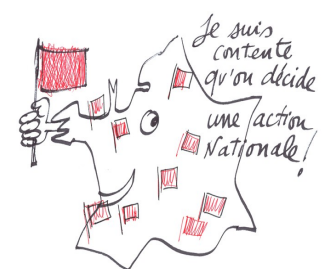 Je suis
contente
qu'on décide
une action
Nationale!